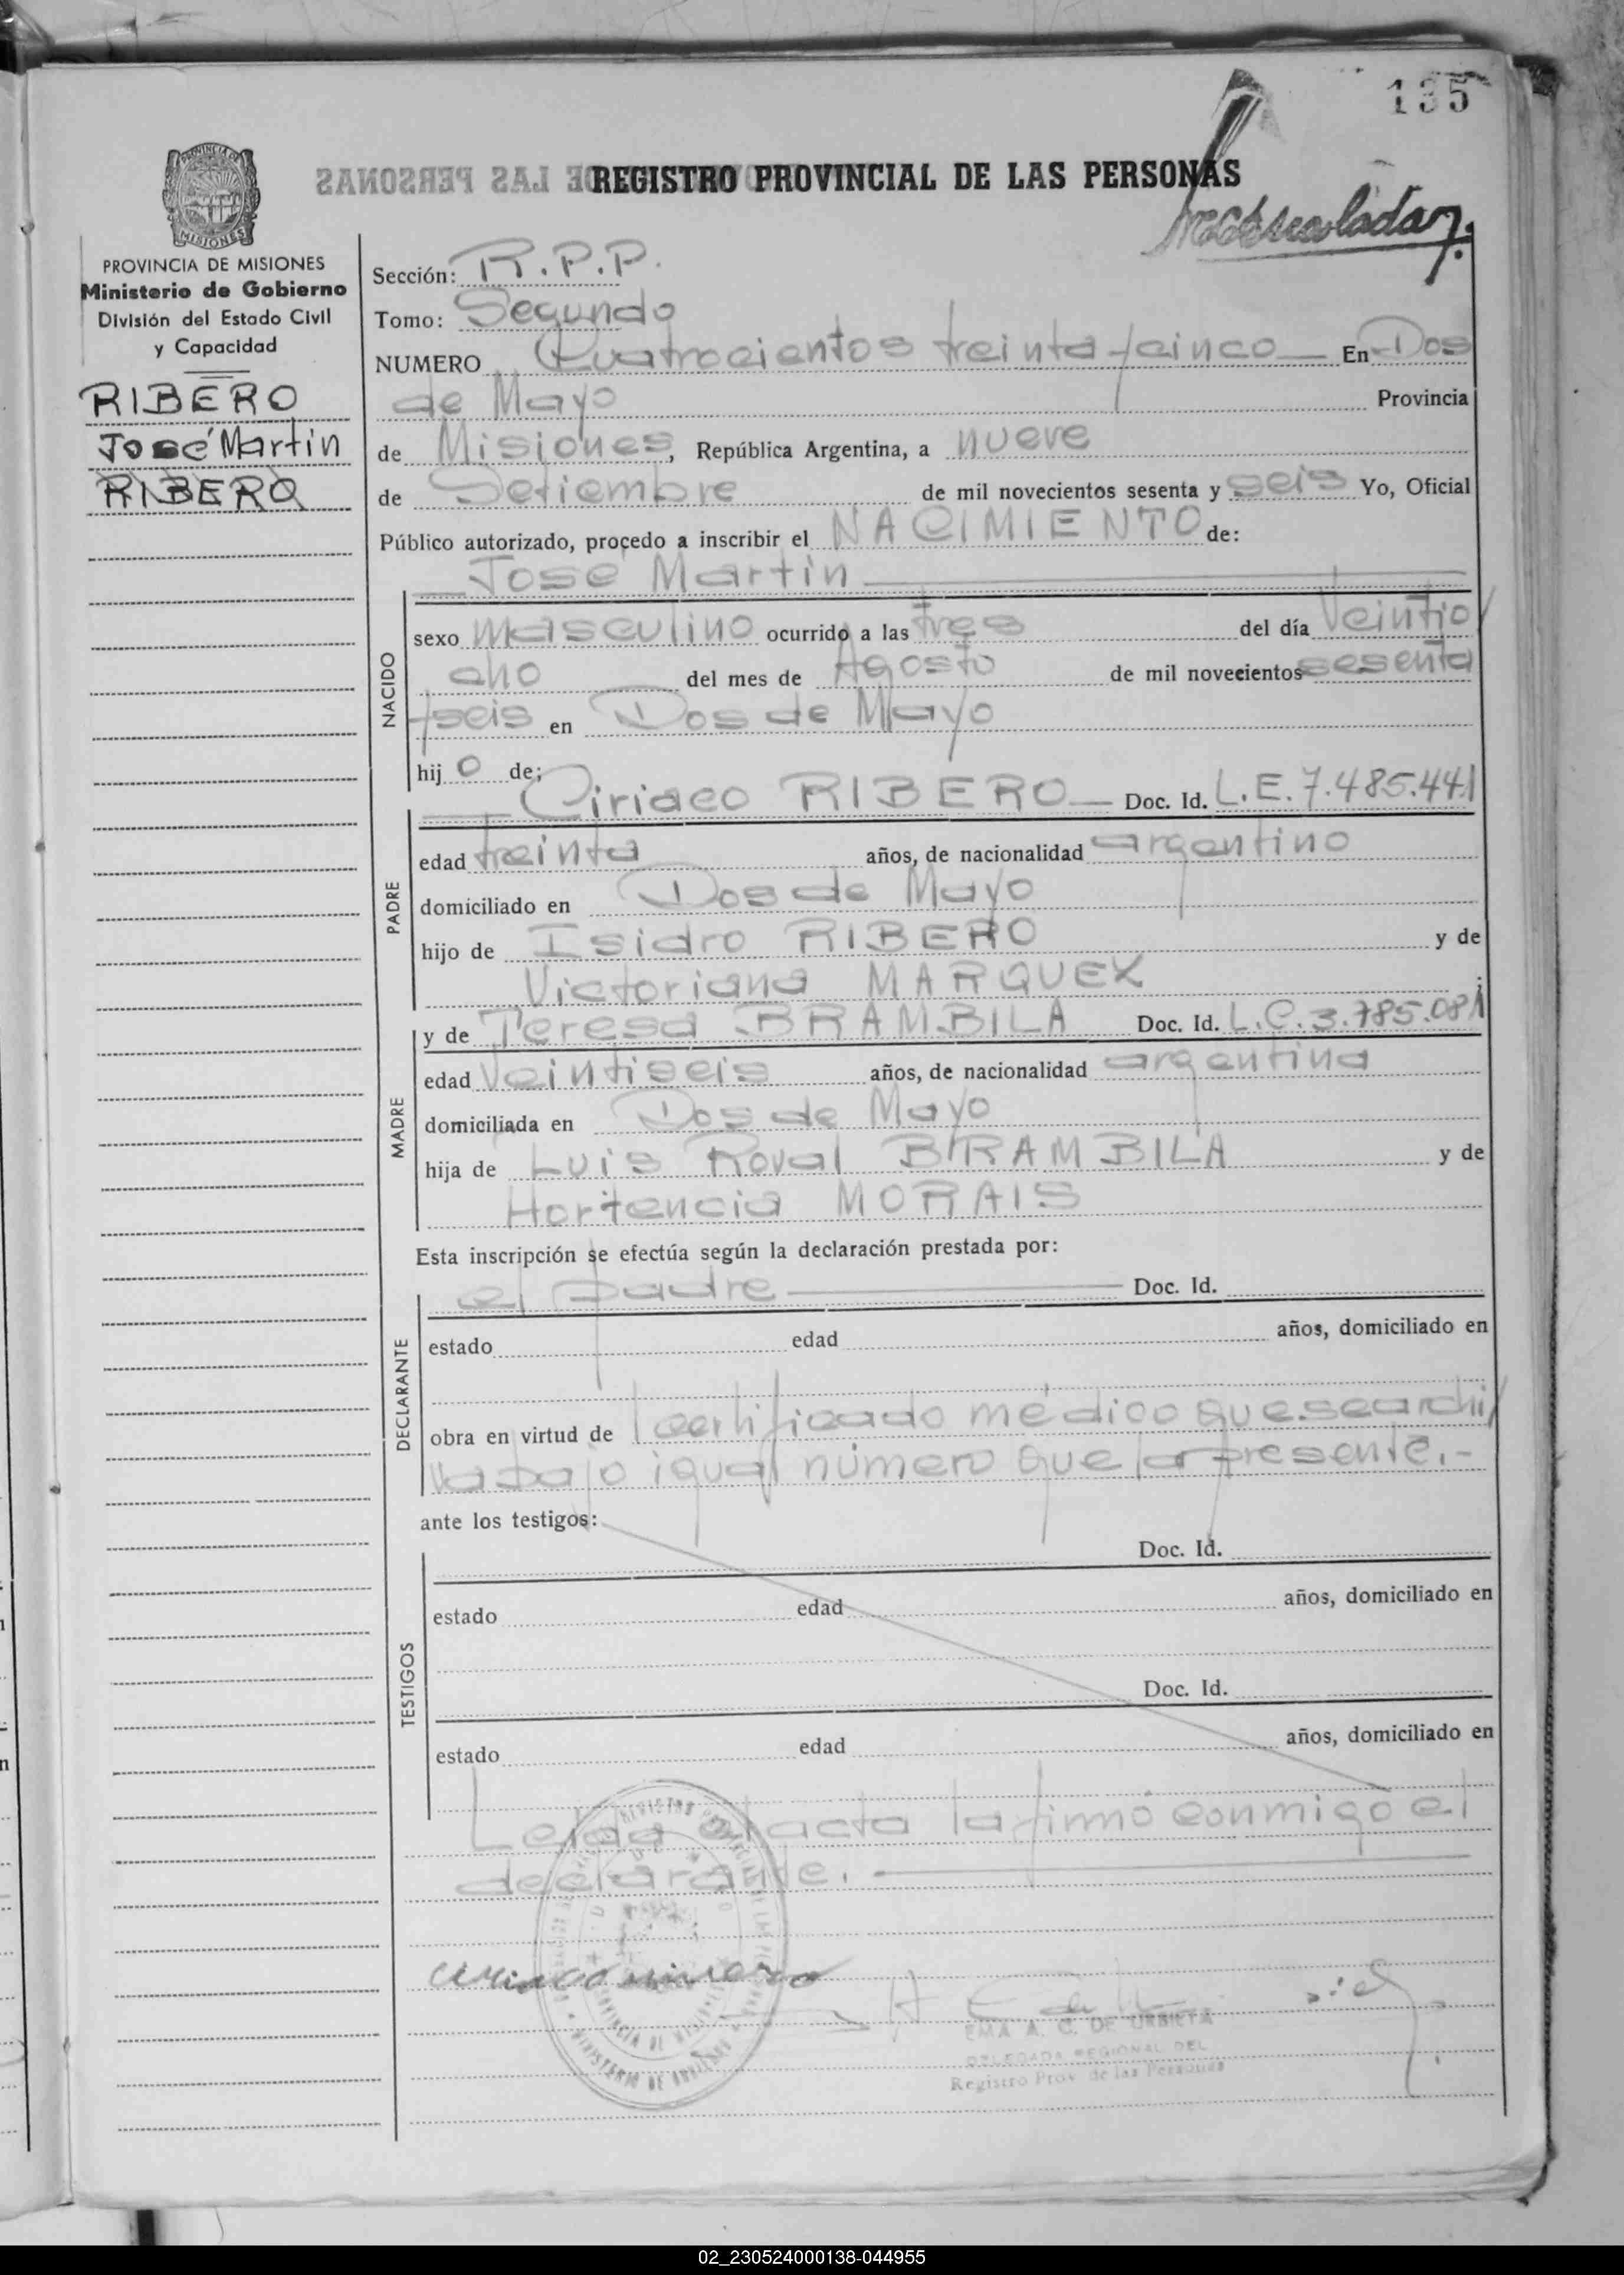 135
REGISTRO PROVINCIAL DE LAS PERSONAS
PROVINCIA DE MISIONES
Ministerio de Gobierno
División del Estado Civil
y Capacidad
RIBERO
José Martin
RIBERO
Sección: R.P.P.
Tomo: Segundo
NUMERO Cuatrocientos treinta y cinco En Dos
de Mayo Provincia
de Misiones, República Argentina, a nueve
de Setiembre de mil novecientos sesenta y seis Yo, Oficial
Público autorizado, procedo a inscribir el NACIMIENTO de:
José Martin
NACIDO
sexo masculino ocurrido a las tres del día Veintio/
cho del mes de Agosto de mil novecientos sesenta
y seis en Dos de Mayo
hijo de;
Ciriaco RIBERO Doc. Id. L.E. 7.485.441
PADRE
edad treinta años, de nacionalidad argentino
domiciliado en Dos de Mayo
hijo de Isidro RIBERO y de
Victoriana MARQUEZ
y de Teresa BRAMBILA Doc. Id. L.C. 3.785.081
MADRE
edad Veintiseis años, de nacionalidad argentina
domiciliada en Dos de Mayo
hija de Luis Roval BRAMBILA y de
Hortencia MORAIS
Esta inscripción se efectúa según la declaración prestada por:
el padre Doc. Id.
DECLARANTE
estado edad años, domiciliado en
obra en virtud de certificado médico que se archi/
va bajo igual número que la presente.-
ante los testigos:
Doc. Id.
TESTIGOS
estado edad años, domiciliado en
Doc. Id.
estado edad años, domiciliado en
Leida el acta la firmó conmigo el
declarante.
EMA A. C. DE URBIETA
DELEGADA REGIONAL DEL
Registro Prov. de las Personas
02_230524000138-044955